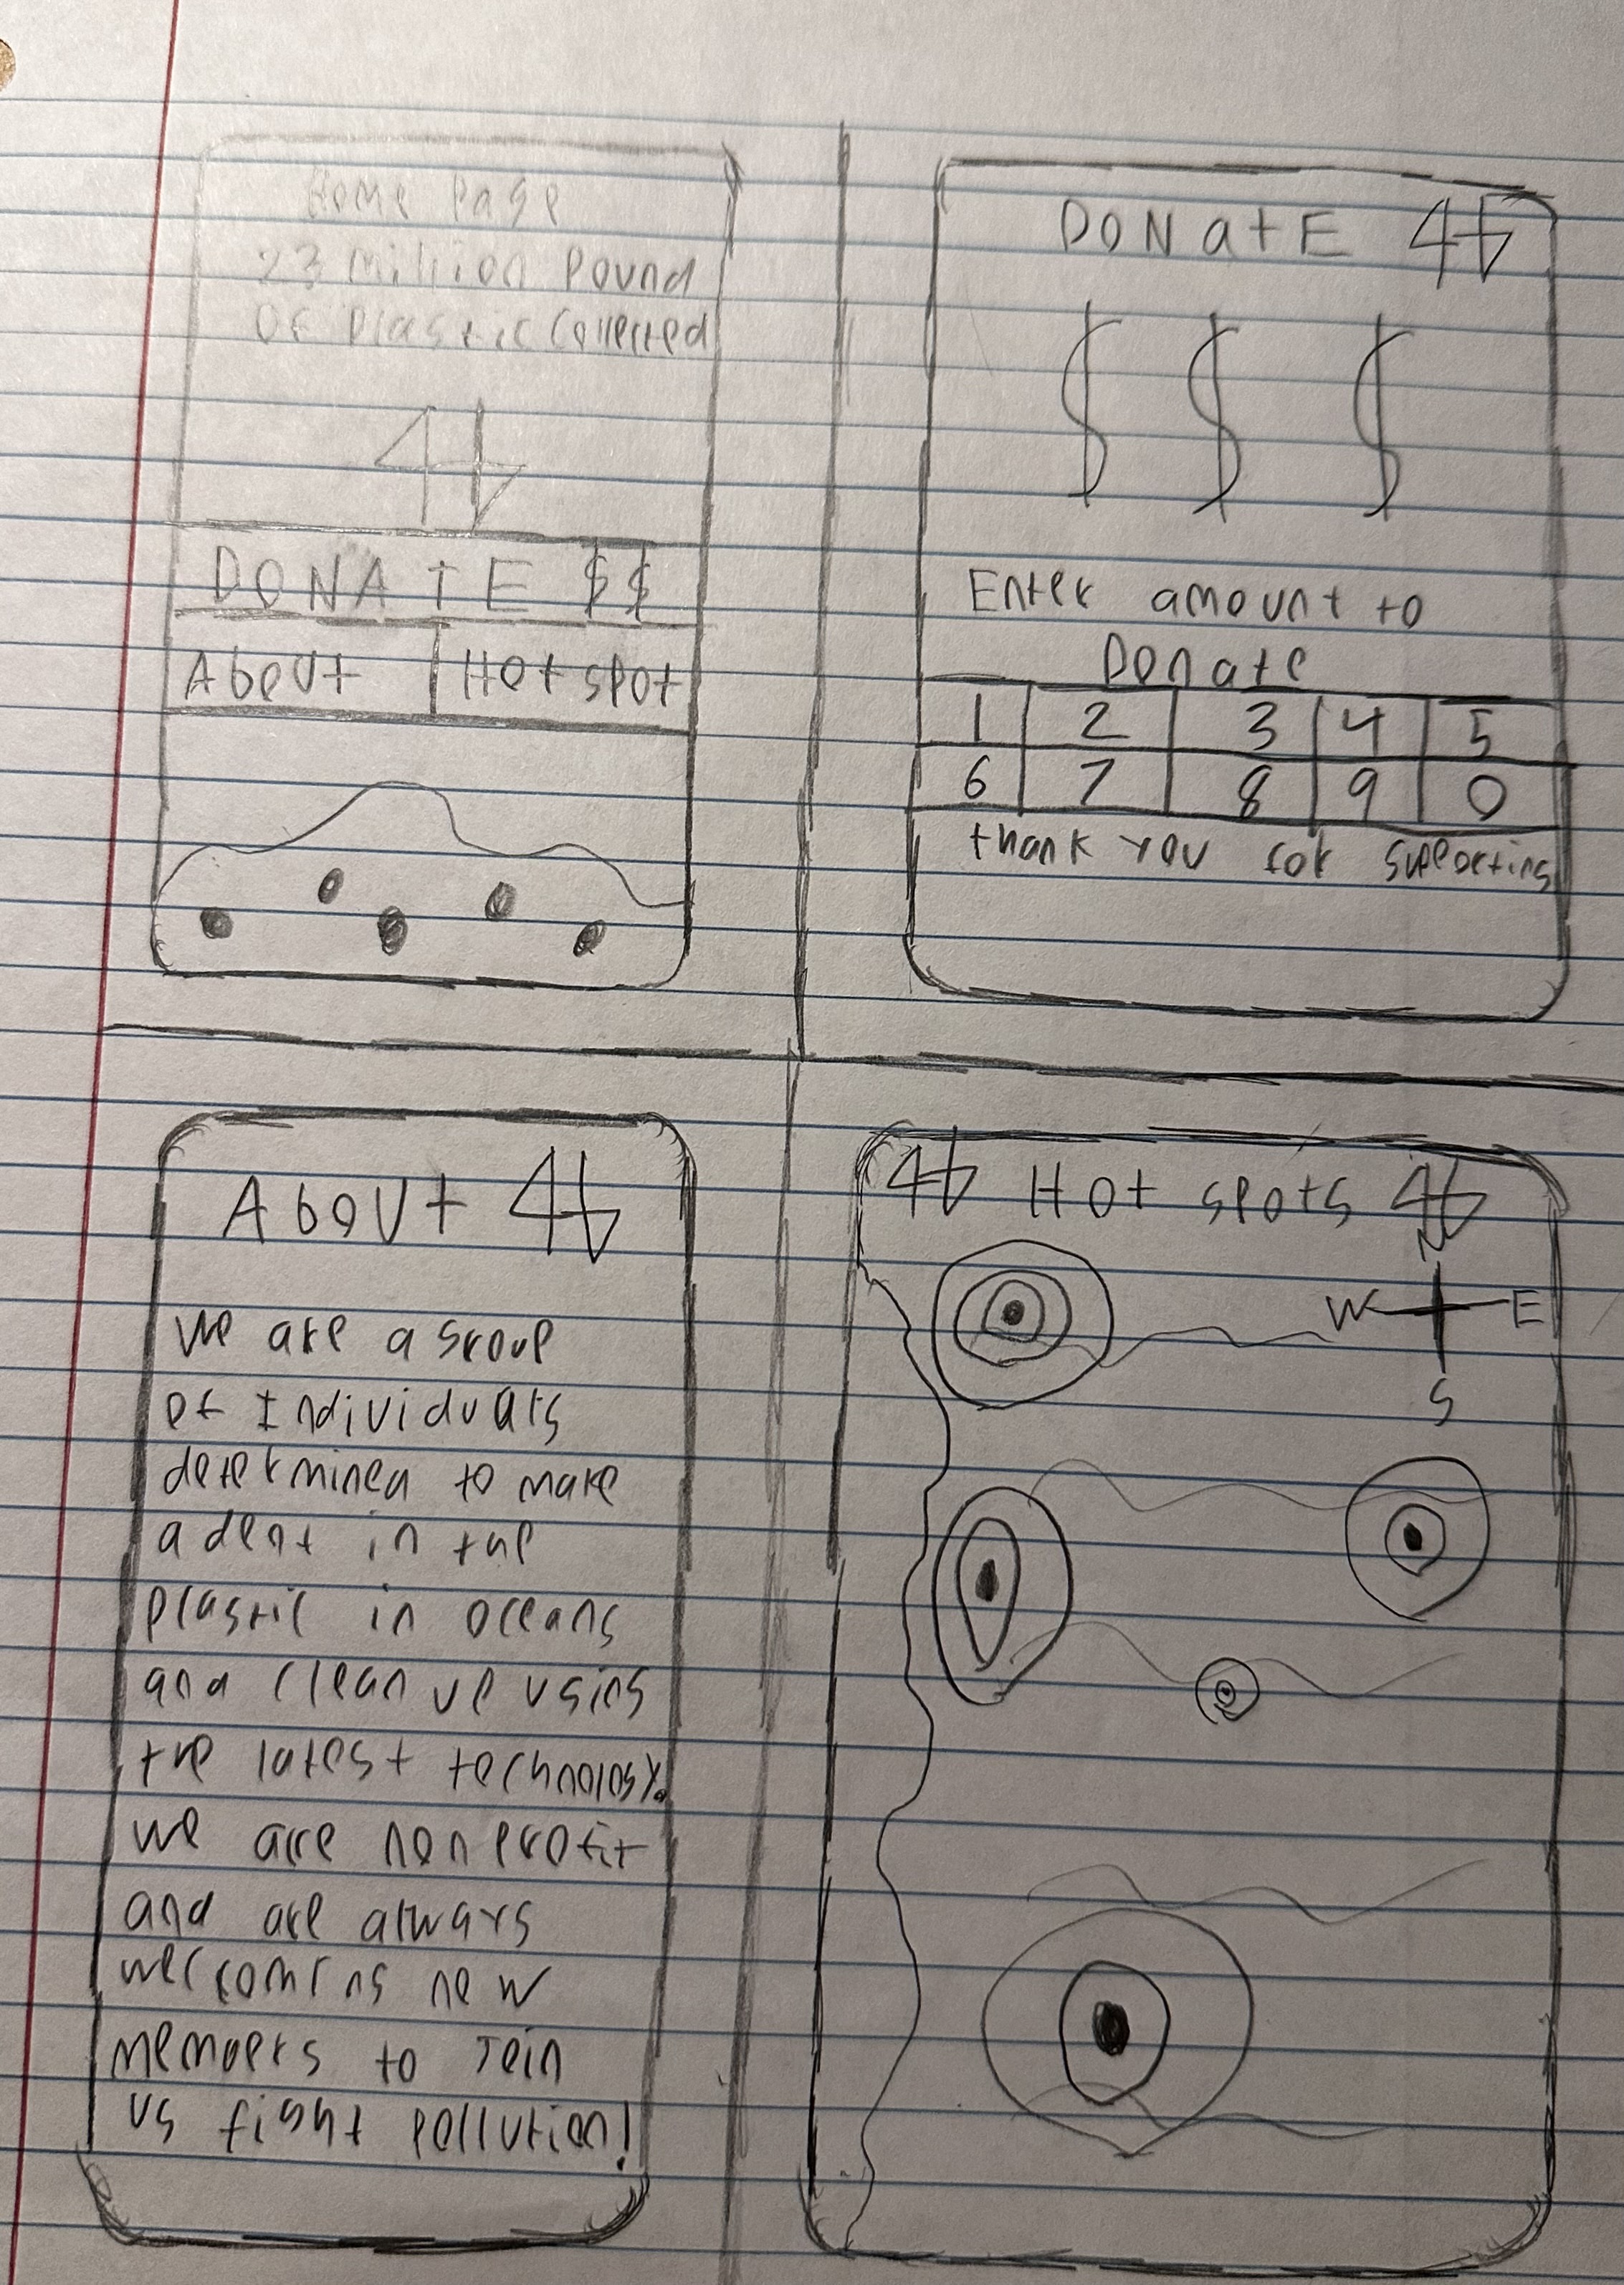 Home Page
23 Million Pound
Of Plastic Collected
DONATE $$
About Hot spot
DONatE
$ $ $
Enter amount to
Donate
1 2 3 4 5
6 7 8 9 0
thank you for supporting
About
We are a group
of Individuals
determined to make
a dent in the
plastic in oceans
and clean up using
the latest technology.
we are non profit
and are always
welcoming new
members to Join
us fight pollution!
Hot spots
N
W E
S